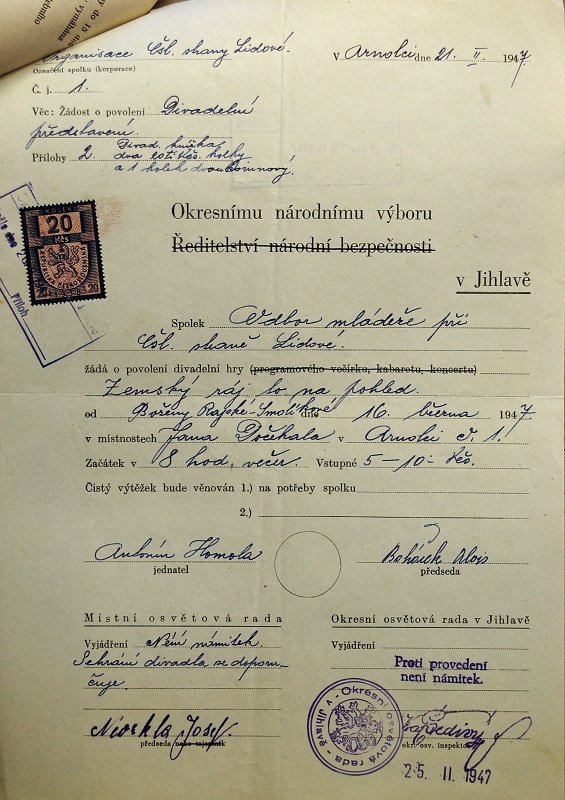 ny do 15 dn
vymáhána
Organisace Čsl. strany Lidové.
V Arnolci dne 21. II. 1947
Označení spolku (korporace)
Č. j. 1.
Věc: Žádost o povolení Divadelní
představení.
Divad. knížka
Přílohy 2 dva 20ti Kčs. kolky
a 1 kolek dvoukorunový.
KOLEK
20
Kčs
Příloh
Okresnímu národnímu výboru
Ředitelství národní bezpečnosti
v Jihlavě
Spolek Odbor mládeže při
Čsl. straně Lidové.
žádá o povolení divadelní hry (programového večírku, kabaretu, koncertu)
Zemský ráj to na pohled.
od Boženy Rajské-Smolíkové dne 16. března 1947
v místnostech Jana Dočkala v Arnolci č. 1.
Začátek v 8 hod. večer. Vstupné 5-10- Kčs.
Čistý výtěžek bude věnován 1.) na potřeby spolku
2.)
Antonín Homola
jednatel
Boháček Alois
předseda
Místní osvětová rada
Vyjádření Není námitek.
Sehrání divadla se doporu-
čuje.
Josef
předseda nebo tajemník
Okresní osvětová rada v Jihlavě
Vyjádření
Proti provedení
není námitek.
Okresní osvětová rada - v Jihlavě -
okr. osv. inspektor
25. II. 1947